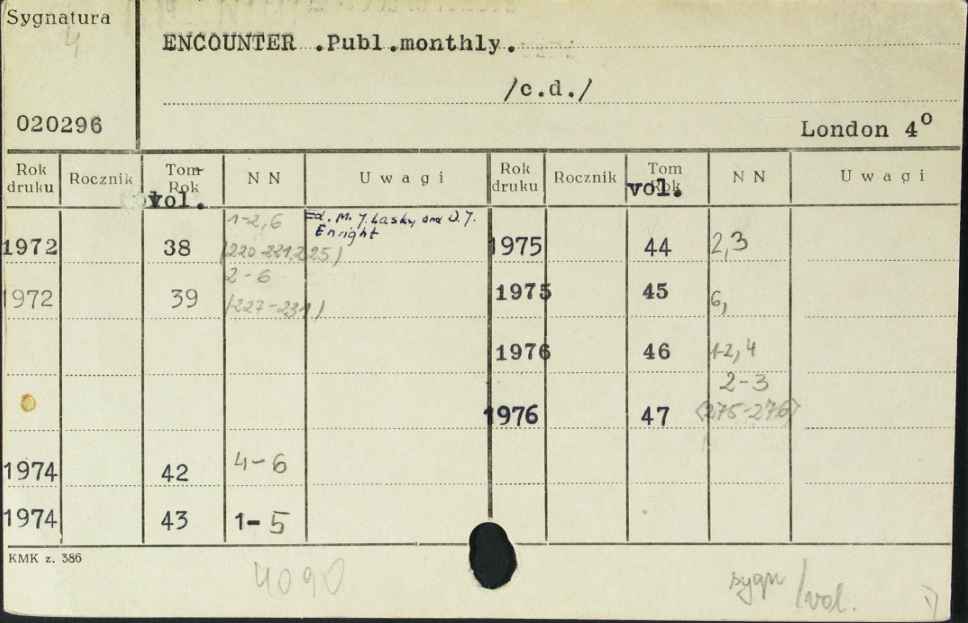 Sygnatura
4
ENCOUNTER .Publ.monthly.
/c.d./
020296
London 4°
Rok druku Rocznik Tom Rok vol. N N U w a g i Rok druku Rocznik Tom Rok vol. N N U w a g i
1972 38 1-2,6 (220-221,225) Ed. M. J. Lasky and D. J. Enright 1975 44 2,3
1972 39 2-6 (227-231) 1975 45 6,
1976 46 1-2,4
1976 47 2-3 (275-276)
1974 42 4-6
1974 43 1-5
KMK z. 386
4090
sygn /vol.